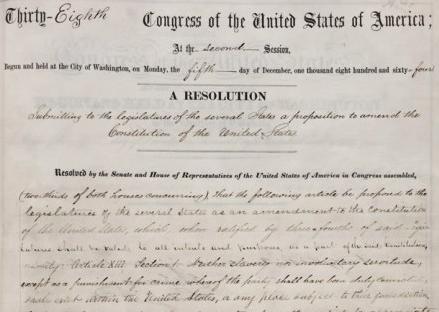 Thirty-Eighth Congress of the United States of America;
At the second Session,
Begun and held at the City of Washington, on Monday, the fifth day of December, one thousand eight hundred and sixty-four
A RESOLUTION
Submitting to the legislatures of the several States a proposition to amend the
Constitution of the United States
Resolved by the Senate and House of Representatives of the United States of America in Congress assembled,
(two-thirds of both houses concurring), that the following article be proposed to the
legislatures of the several States as an amendment to the Constitution
of the United States, which, when ratified by three-fourths of said legis-
latures shall be valid, to all intents and purposes, as a part of the said Constitution,
namely: Article XIII. Section 1. Neither slavery nor involuntary servitude,
except as a punishment for crime whereof the party shall have been duly convicted,
shall exist within the United States, or any place subject to their jurisdiction.